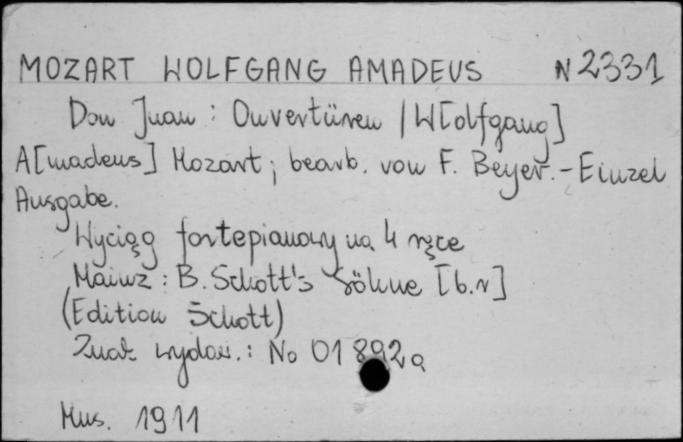 MOZART WOLFGANG AMADEUS N 2331
Don Juan : Ouvertüren / W[olfgang]
A[madeus] Mozart ; bearb. von F. Beyer. - Einzel
Ausgabe.
Wyciąg fortepianowy na 4 ręce
Mainz : B. Schott's Söhne [b.r]
(Edition Schott)
Znak wydaw. : No 01 892a
Mus. 1911